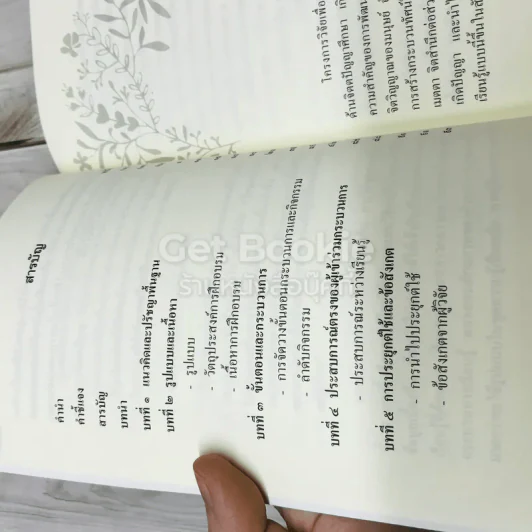 สารบัญ
คำนำ
คำชี้แจง
สารบัญ
บทนำ
บทที่ ๑ แนวคิดและปรัชญาพื้นฐาน
บทที่ ๒ รูปแบบและเนื้อหา
- รูปแบบ
- วัตถุประสงค์การฝึกอบรม
- เนื้อหาการฝึกอบรม
บทที่ ๓ ขั้นตอนและกระบวนการ
- การจัดวางขั้นตอนกระบวนการและกิจกรรม
- ลำดับกิจกรรม
บทที่ ๔ ประสบการณ์ตรงของผู้เข้าร่วมกระบวนการ
- ประสบการณ์ระหว่างเรียนรู้
บทที่ ๕ การประยุกต์ใช้และข้อสังเกต
- การนำไปประยุกต์ใช้
- ข้อสังเกตจากผู้วิจัย
โครงการวิจัยเพื่อ
ด้านจิตตปัญญาศึกษา
ความสำคัญของการพัฒน
จิตวิญญาณของมนุษย์
การสร้างกระบวนทัศน์
เมตตา จิตสำนึกต่อส่ว
เกิดปัญญา และนำ
เรียนรู้แบบนี้ขึ้นในสั
Get Bookie
ร้านหนังสือนุ๊กกี้